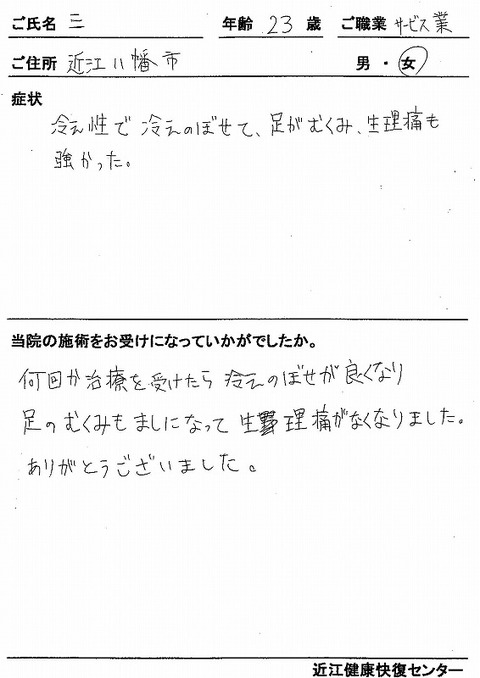 ご氏名 三 年齢 23 歳 ご職業 サービス業
ご住所 近江八幡市 男・女
症状
冷え性で 冷えのぼせて、足がむくみ、生理痛も
強かった。
当院の施術をお受けになっていかがでしたか。
何回か治療を受けたら 冷えのぼせが良くなり
足のむくみもましになって 生理痛がなくなりました。
ありがとうございました。
近江健康快復センター